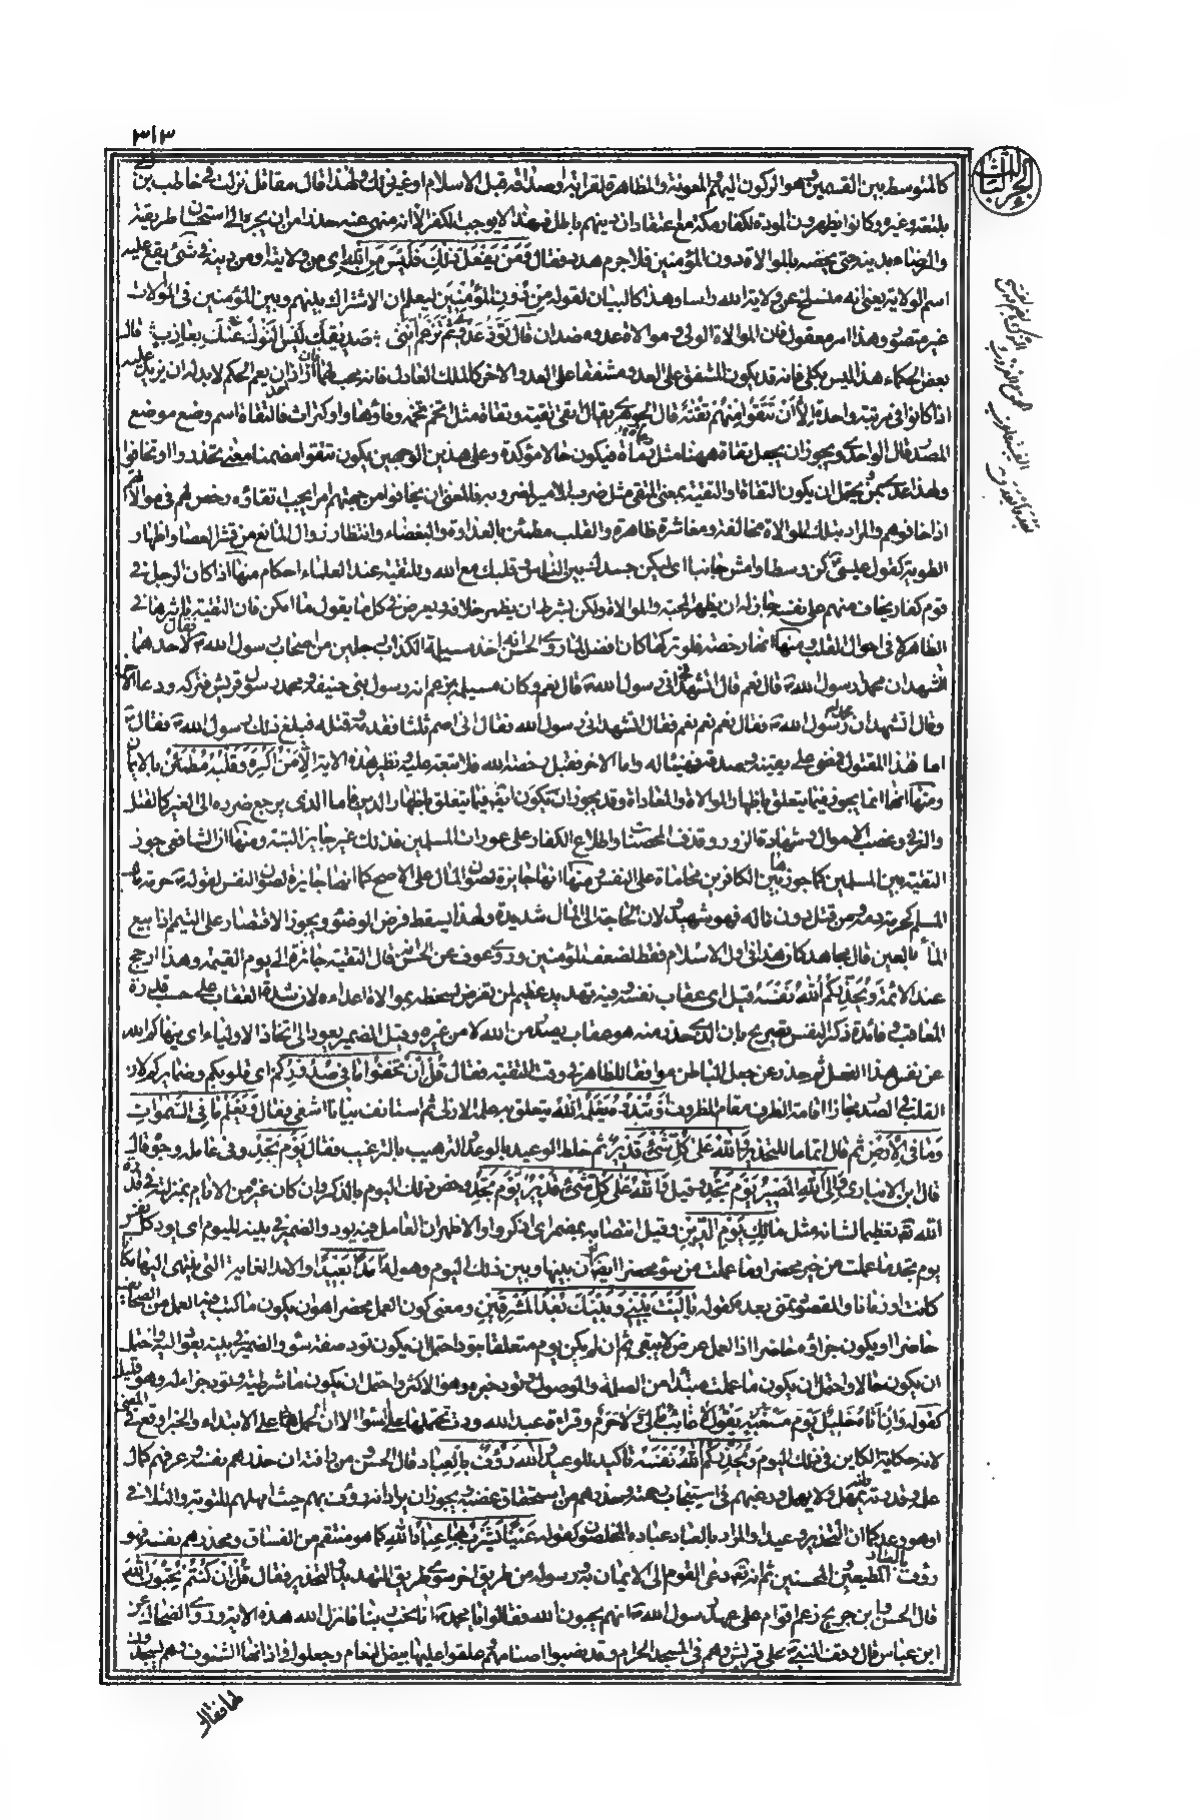 ٣١٣
الجزء الثالث
كالمتوسط بين القسمين هو الركون اليهم والمعونة والمظاهرة لقرابة او صداقة قبل الاسلام او غير ذلك ولهذا قال مقاتل نزلت في حاطب بن
بلتعة وغيره وكانوا يظهرون المودة لكفار مكة مع اعتقاد ان دينهم باطل فهذا لا يوجب الكفر الا انه منهي عنه حذرا من ان يجر الى استحسان طريقته
والرضاء بدينه حتى يخصه بالموالاة دون المؤمنين فلا جرم هدد فقال وَمَنْ يَفْعَلْ ذٰلِكَ فَلَيْسَ مِنَ اللّٰهِ اى من ولايته او من دينه فى شئ يقع عليه
اسم الولاية يعنى انه منسلخ عن ولاية الله راسا وهذا كالبيان لقوله مِنْ دُونِ الْمُؤْمِنِينَ ليعلم ان الاشتراك بينهم وبين المؤمنين فى الموالات
غير متصور وهذا امر معقول فان موالاة الولى وموالاة عدوه ضدان قال تَوَدُّ عَدُوِّى ثُمَّ تَزْعُمُ اَنَّنِى صَدِيقُكَ لَيْسَ النَّوْكُ عَنْكَ بِعَازِبِ قال
بعض الحكماء هذا ليس بكلى فانه قد يكون المشفق على العدو مشفقا على العدو الاخر كالملك العادل فانه محب لهما فاذن ان يعم الحكم لابد له ان يزيد عليه
اذا كانوا فى مرتبة واحدة اِلَّا اَنْ تَتَّقُوا مِنْهُمْ تُقٰىةً قال الجوهرى يقال اتقى تقية وتقاة مثل اتخم تخمة وفاؤها واو كتراث فالتقاة اسم وضع موضع
المصدر قال الواحدى ويجوز ان يجعل تقاة ههنا مثل رماة فيكون حالا مؤكدة وعلى هذين الوجهين يكون تتقوا مضمنا معنى تحذروا او تخافوا
ولهذا عدى بمن ويحتمل ان يكون التقاة او التقية بمعنى المتقى مثل ضرب الامير لمضروبه فالمعنى ان يخافوا من جهتهم امرا يجب اتقاؤه رخص لهم فى موالاتهم
اذا خافوهم والمراد بتلك الموالاة مخالفة ومعاشرة ظاهرة والقلب مطمئن بالعداوة والبغضاء وانتظار زوال المانع من قشر العصا واظهار
الطوية كقول عيسى كن وسطا وامش جانبا اى ليكن جسدك بين الناس وقلبك مع الله وللتقية عند العلماء احكام منها اذا كان الرجل فى
قوم كفار يخاف منهم على نفسه جاز له ان يظهر المحبة والموالاة ولكن بشرط ان يظهر خلافه ويعرض فى كل ما يقول ما امكن فان التقية تاثيرها فى
الظاهر لا فى احوال القلب ومنها انها رخصة فلو تركها كان افضل لما روى الحسن انه اخذ مسيلمة الكذاب رجلين من اصحاب رسول الله فقال لاحدهما
اتشهد ان محمدا رسول الله قال نعم قال اتشهد انى رسول الله قال نعم وكان مسيلمة يزعم انه رسول بنى حنيفة ومحمد رسول قريش فتركه ودعا الاخر
وقال اتشهد ان محمدا رسول الله فقال نعم نعم نعم فقال اتشهد انى رسول الله فقال انى اصم ثلثا فقدمه وقتله فبلغ ذلك رسول الله فقال
اما هذا المقتول فمضى على يقينه وصدقه فهنيئا له واما الاخر فقبل رخصة الله فلا تبعة عليه ونظير هذه الاية اِلَّا مَنْ اُكْرِهَ وَقَلْبُهُ مُطْمَئِنٌّ بِالْاِيمَانِ
ومنها انها انما يجوز فيما يتعلق باظهار الموالاة والمعاداة وقد يجوز ان يكون ايضا فيما يتعلق باظهار الدين فاما الذى يرجع ضرره الى الغير كالقتل
والزنى وغصب الاموال وشهادة الزور وقذف المحصنات واطلاع الكفار على عورات المسلمين فذلك غير جايز البتة ومنها ان الشافعى جوز
التقية بين المسلمين كما جوزها بين الكافرين محاماة على النفس ومنها انها جايزة لصون المال على الاصح كما انها جايزة لصون النفس لقوله حرمة مال
المسلم كحرمة دمه ومن قتل دون ماله فهو شهيد ولان الحاجة الى المال شديدة ولهذا يسقط فرض الوضوء ويجوز الاقتصار على التيمم اذا بيع
الماء بالغبن قال مجاهد كان هذا فى اول الاسلام فقط لضعف المؤمنين وروى عوف عن الحسن قال التقية جائزة الى يوم القيمة وهذا ارجح
عند الائمة وَيُحَذِّرُكُمُ اللّٰهُ نَفْسَهُ قيل اى عقاب نفسه وفيه تهديد عظيم لمن تعرض لسخطه بموالاة اعدائه لان شدة العقاب على حسب قدرة
المعاقب وفائدة ذكر النفس تصريح بان الذى حذر منه هو عقاب يصدر من الله لا من غيره وقيل الضمير يعود الى اتخاذ الاولياء اى ينهاكم الله
عن نفس هذا الفعل ثم حذر عن جعل الباطن موافقا للظاهر فى وقت التقية فقال قُلْ اِنْ تُخْفُوا مَا فِى صُدُورِكُمْ اى قلوبكم وضمايركم لان
القلب فى الصدر مجازا اقامة الظرف مقام المظروف اَوْ تُبْدُوهُ يَعْلَمْهُ اللّٰهُ يتعلق به علمه الازلى ثم استانف بيانا اشفى فقال وَيَعْلَمُ مَا فِى السَّمٰوَاتِ
وَمَا فِى الْاَرْضِ ثم قال اتماما للتحذير وَاللّٰهُ عَلٰى كُلِّ شَىْءٍ قَدِيرٌ ثم خلط الوعيد بالوعد والترهيب بالترغيب فقال يَوْمَ تَجِدُ وفى عامله وجوه قال
قال ابن الانبارى وَاِلَى اللّٰهِ الْمَصِيرُ يَوْمَ تَجِدُ وقيل وَاللّٰهُ عَلٰى كُلِّ شَىْءٍ قَدِيرٌ يَوْمَ تَجِدُ وخص ذلك اليوم بالذكر وان كان غيره من الايام بمنزلته فى قدرة
الله تعظيما لشانه مثل مَالِكِ يَوْمِ الدِّينِ وقيل انتصابه بمضمر اى اذكروا والاظهر ان العامل فيه يود والضمير فى بينه لليوم اى يود كل نفس
يوم تجد ما عملت من خير محضرا وما عملت من سوء محضرا ايضا لو ان بينها وبين ذلك اليوم وهوله اَمَدًا بَعِيدًا والامد الغاية التى ينتهى اليها مكانا
كانت او زمانا والمقصود تمنى بعده كقوله يَا لَيْتَ بَيْنِى وَبَيْنَكَ بُعْدَ الْمَشْرِقَيْنِ ومعنى كون العمل محضرا هو ان يكون ما كتب فيه العمل من الصحايف
حاضرا او يكون جزاؤه حاضرا اذ العمل عرض لا يبقى ثم ان لم يكن يوم متعلقا بتود احتمل ان يكون تود صفة سوء والضمير فى بينه يعود اليه واحتمل
ان يكون حالا واحتمل ان يكون ما عملت مبتدأ من الصلة والموصول وتود خبره وهو الاكثر واحتمل ان يكون ما شرطية وتود جزاء له وهو قليل
كقوله وَاِنْ اَتَاهُ خَلِيلٌ يَوْمَ مَسْغَبَةٍ يَقُولُ لَا غَائِبٌ مَالِى وَلَا حَرِمُ وقراءة عبد الله ودت يحتملها على السواء الا ان الحمل على الابتداء والخبر اوقع فى المعنى
لانه حكاية الكاين فى ذلك اليوم وَيُحَذِّرُكُمُ اللّٰهُ نَفْسَهُ تاكيد للوعيد وَاللّٰهُ رَؤُفٌ بِالْعِبَادِ قال الحسن من رافته ان حذرهم نفسه وعرفهم كمال
علمه وقدرته وانه يمهل ولا يهمل ورغبهم فى استيجاب رحمته وحذرهم من استحقاق غضبه ويجوز ان يراد انه رؤف بهم حيث امهلهم للتوبة والتلافى
او هو وعد كما ان التحذير وعيد او المراد بالعباد عباده المخلصون كقوله عَيْنًا يَشْرَبُ بِهَا عِبَادُ اللّٰهِ كما هو منتقم من الفساق ومحذرهم نفسه فهو
رؤف بالعباد المطيعين المحسنين ثم انه تعالى دعى القوم الى الايمان به وبرسوله من طريق اخر سوى طريق التهديد والتحذير فقال قُلْ اِنْ كُنْتُمْ تُحِبُّونَ اللّٰهَ
قال الحسن وابن جريج زعم اقوام على عهد رسول الله انهم يحبون الله فقالوا يا محمد انا نحب ربنا فانزل الله هذه الاية وروى الضحاك عن
ابن عباس قال وقف النبى على قريش وهم فى المسجد الحرام وقد نصبوا اصنامهم وعلقوا عليها بيض النعام وجعلوا فى اذانها الشنوف وهم يسجدون
لها فقال